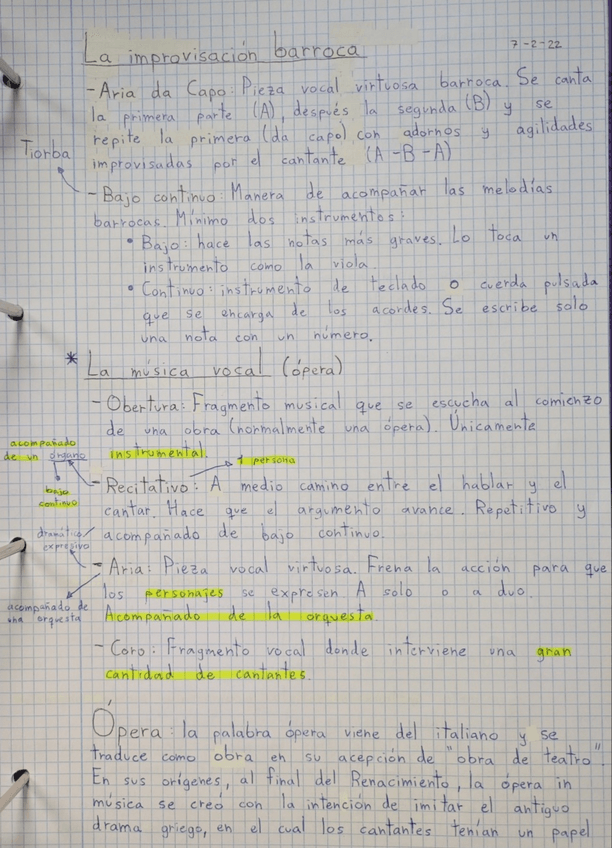 La improvisación barroca
7-2-22
-Aria da Capo: Pieza vocal virtuosa barroca. Se canta
la primera parte (A), después la segunda (B) y se
repite la primera (da capo) con adornos y agilidades
improvisadas por el cantante (A-B-A)
Tiorba
-Bajo continuo: Manera de acompañar las melodías
barrocas. Mínimo dos instrumentos:
• Bajo: hace las notas más graves. Lo toca un
instrumento como la viola.
• Continuo: instrumento de teclado o cuerda pulsada
que se encarga de los acordes. Se escribe solo
una nota con un número.
* La música vocal (ópera)
-Obertura: Fragmento musical que se escucha al comienzo
de una obra (normalmente una ópera). Únicamente
instrumental.
acompañado
de un órgano
bajo
continuo
1 persona
-Recitativo: A medio camino entre el hablar y el
cantar. Hace que el argumento avance. Repetitivo y
acompañado de bajo continuo.
dramático/
expresivo
-Aria: Pieza vocal virtuosa. Frena la acción para que
los personajes se expresen A solo o a duo.
Acompañado de la orquesta.
acompañado de
una orquesta
-Coro: Fragmento vocal donde interviene una gran
cantidad de cantantes.
Ópera: la palabra ópera viene del italiano y se
traduce como obra en su acepción de "obra de teatro".
En sus orígenes, al final del Renacimiento, la ópera in
música se creó con la intención de imitar el antiguo
drama griego, en el cual los cantantes tenían un papel